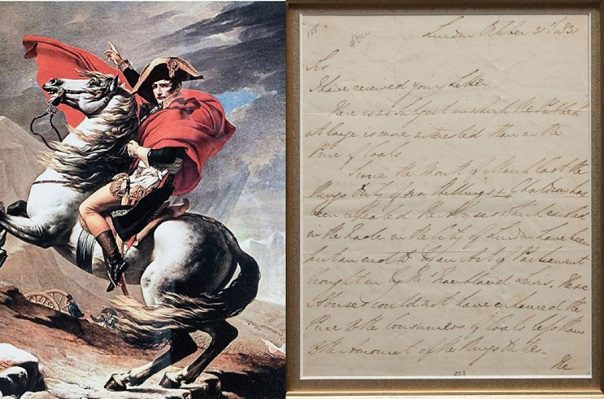 London October 31st 1831
Sir
I have received your letter
There is no subject in which the Publick
at large is more interested than in the
Price of Coals
Since the Month of March last the
King's Duty of six shillings a Chaldron has
been repealed. The Abuses which existed
in the Trade in the City of London have been
put an end to by an Act of Parliament
brought in by Mr Frankland Lewis. These
Abuses could not have enhanced the
Price to the consumers of Coals less than
to the Amount of the King's
The